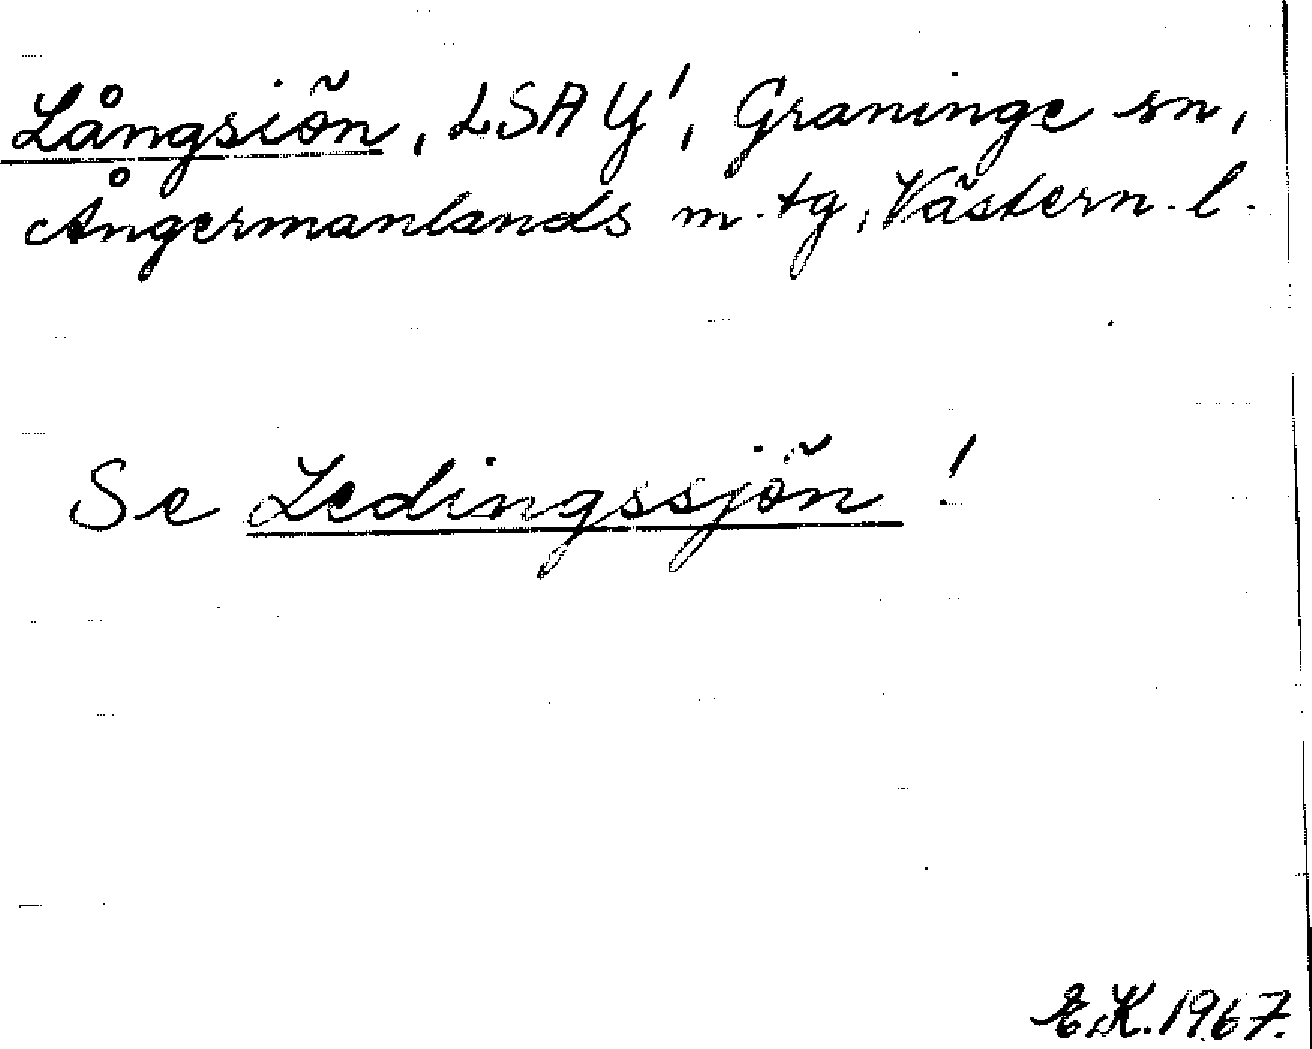 Långsiön, LSA Y', Graninge sn,
Ångermanlands m. tg, Västern. l.
Se Ledingssjön!
E.K. 1967.